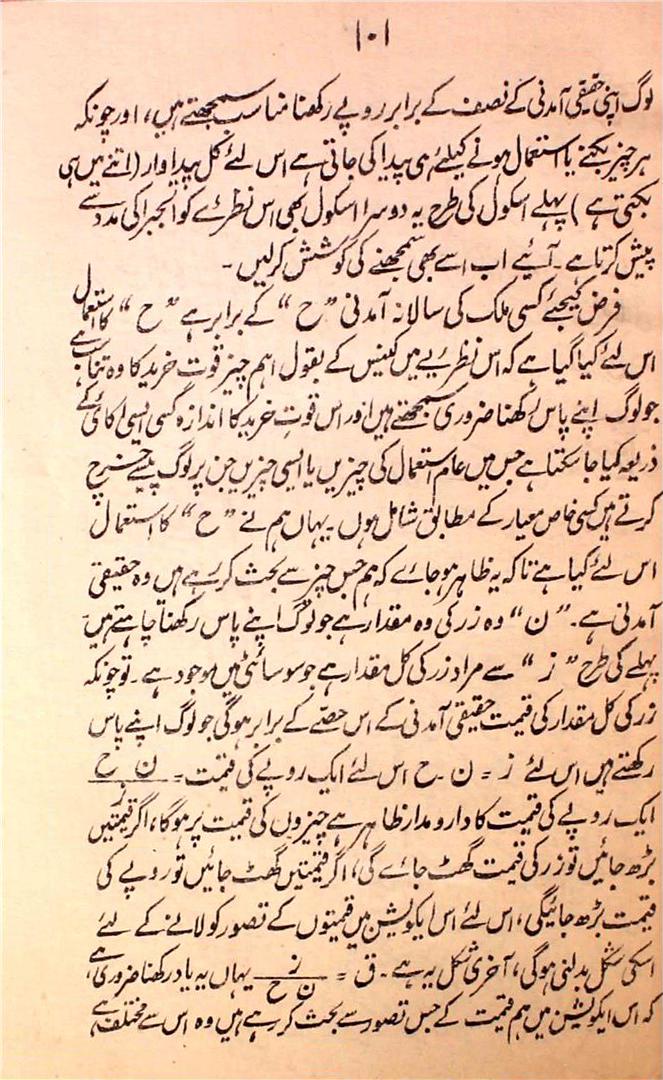 ۱۰۱
لوگ اپنی حقیقی آمدنی کے نصف کے برابر روپے رکھنا مناسب سمجھتے ہیں، اور چونکہ
ہر چیز بکنے یا استعمال ہونے کیلئے ہی پیدا کی جاتی ہے اس لئے کل پیداوار (اتنے میں ہی
بکتی ہے) پہلے اسکول کی طرح یہ دوسرا اسکول بھی اس نظرئے کو الجبرا کی مدد سے
پیش کرتا ہے۔ آئیے اب اسے بھی سمجھنے کی کوشش کرلیں۔
فرض کیجئے کسی ملک کی سالانہ آمدنی ”ح“ کے برابر ہے ”ح“ کا استعمال
اس لئے کیا گیا ہے کہ اس نظریے میں کینس کے بقول اہم چیز قوت خرید کا وہ تناسب ہے
جو لوگ اپنے پاس رکھنا ضروری سمجھتے ہیں اور اس قوتِ خرید کا اندازہ کسی ایسی اکائی کے
ذریعہ کیا جا سکتا ہے جس میں عام استعمال کی چیزیں یا ایسی چیزیں جن پر لوگ پیسے خرچ
کرتے ہیں کسی خاص معیار کے مطابق شامل ہوں۔ یہاں ہم نے ”ح“ کا استعمال
اس لئے کیا ہے تاکہ یہ ظاہر ہو جائے کہ ہم جس چیز سے بحث کر رہے ہیں وہ حقیقی
آمدنی ہے۔ ”ن“ وہ زر کی وہ مقدار ہے جو لوگ اپنے پاس رکھنا چاہتے ہیں
پہلے کی طرح ”ز“ سے مراد زر کی کل مقدار ہے جو سوسائٹی میں موجود ہے۔ تو چونکہ
زر کی کل مقدار کی قیمت حقیقی آمدنی کے اس حصے کے برابر ہوگی جو لوگ اپنے پاس
رکھتے ہیں اس لئے ز = ن ۔ ح اس لئے ایک روپے کی قیمت = ن ح / ز
ایک روپے کی قیمت کا دار و مدار ظاہر ہے چیزوں کی قیمت پر ہوگا، اگر قیمتیں
بڑھ جائیں تو زر کی قیمت گھٹ جائے گی، اگر قیمتیں گھٹ جائیں تو روپے کی
قیمت بڑھ جائیگی، اس لئے اس ایکویشن میں قیمتوں کے تصور کو لانے کے لئے
اسکی شکل بدلنی ہوگی، آخری شکل یہ ہے۔ ق = ز / ن ح یہاں یہ یاد رکھنا ضروری ہے
کہ اس ایکویشن میں ہم قیمت کے جس تصور سے بحث کر رہے ہیں وہ اس سے مختلف ہے